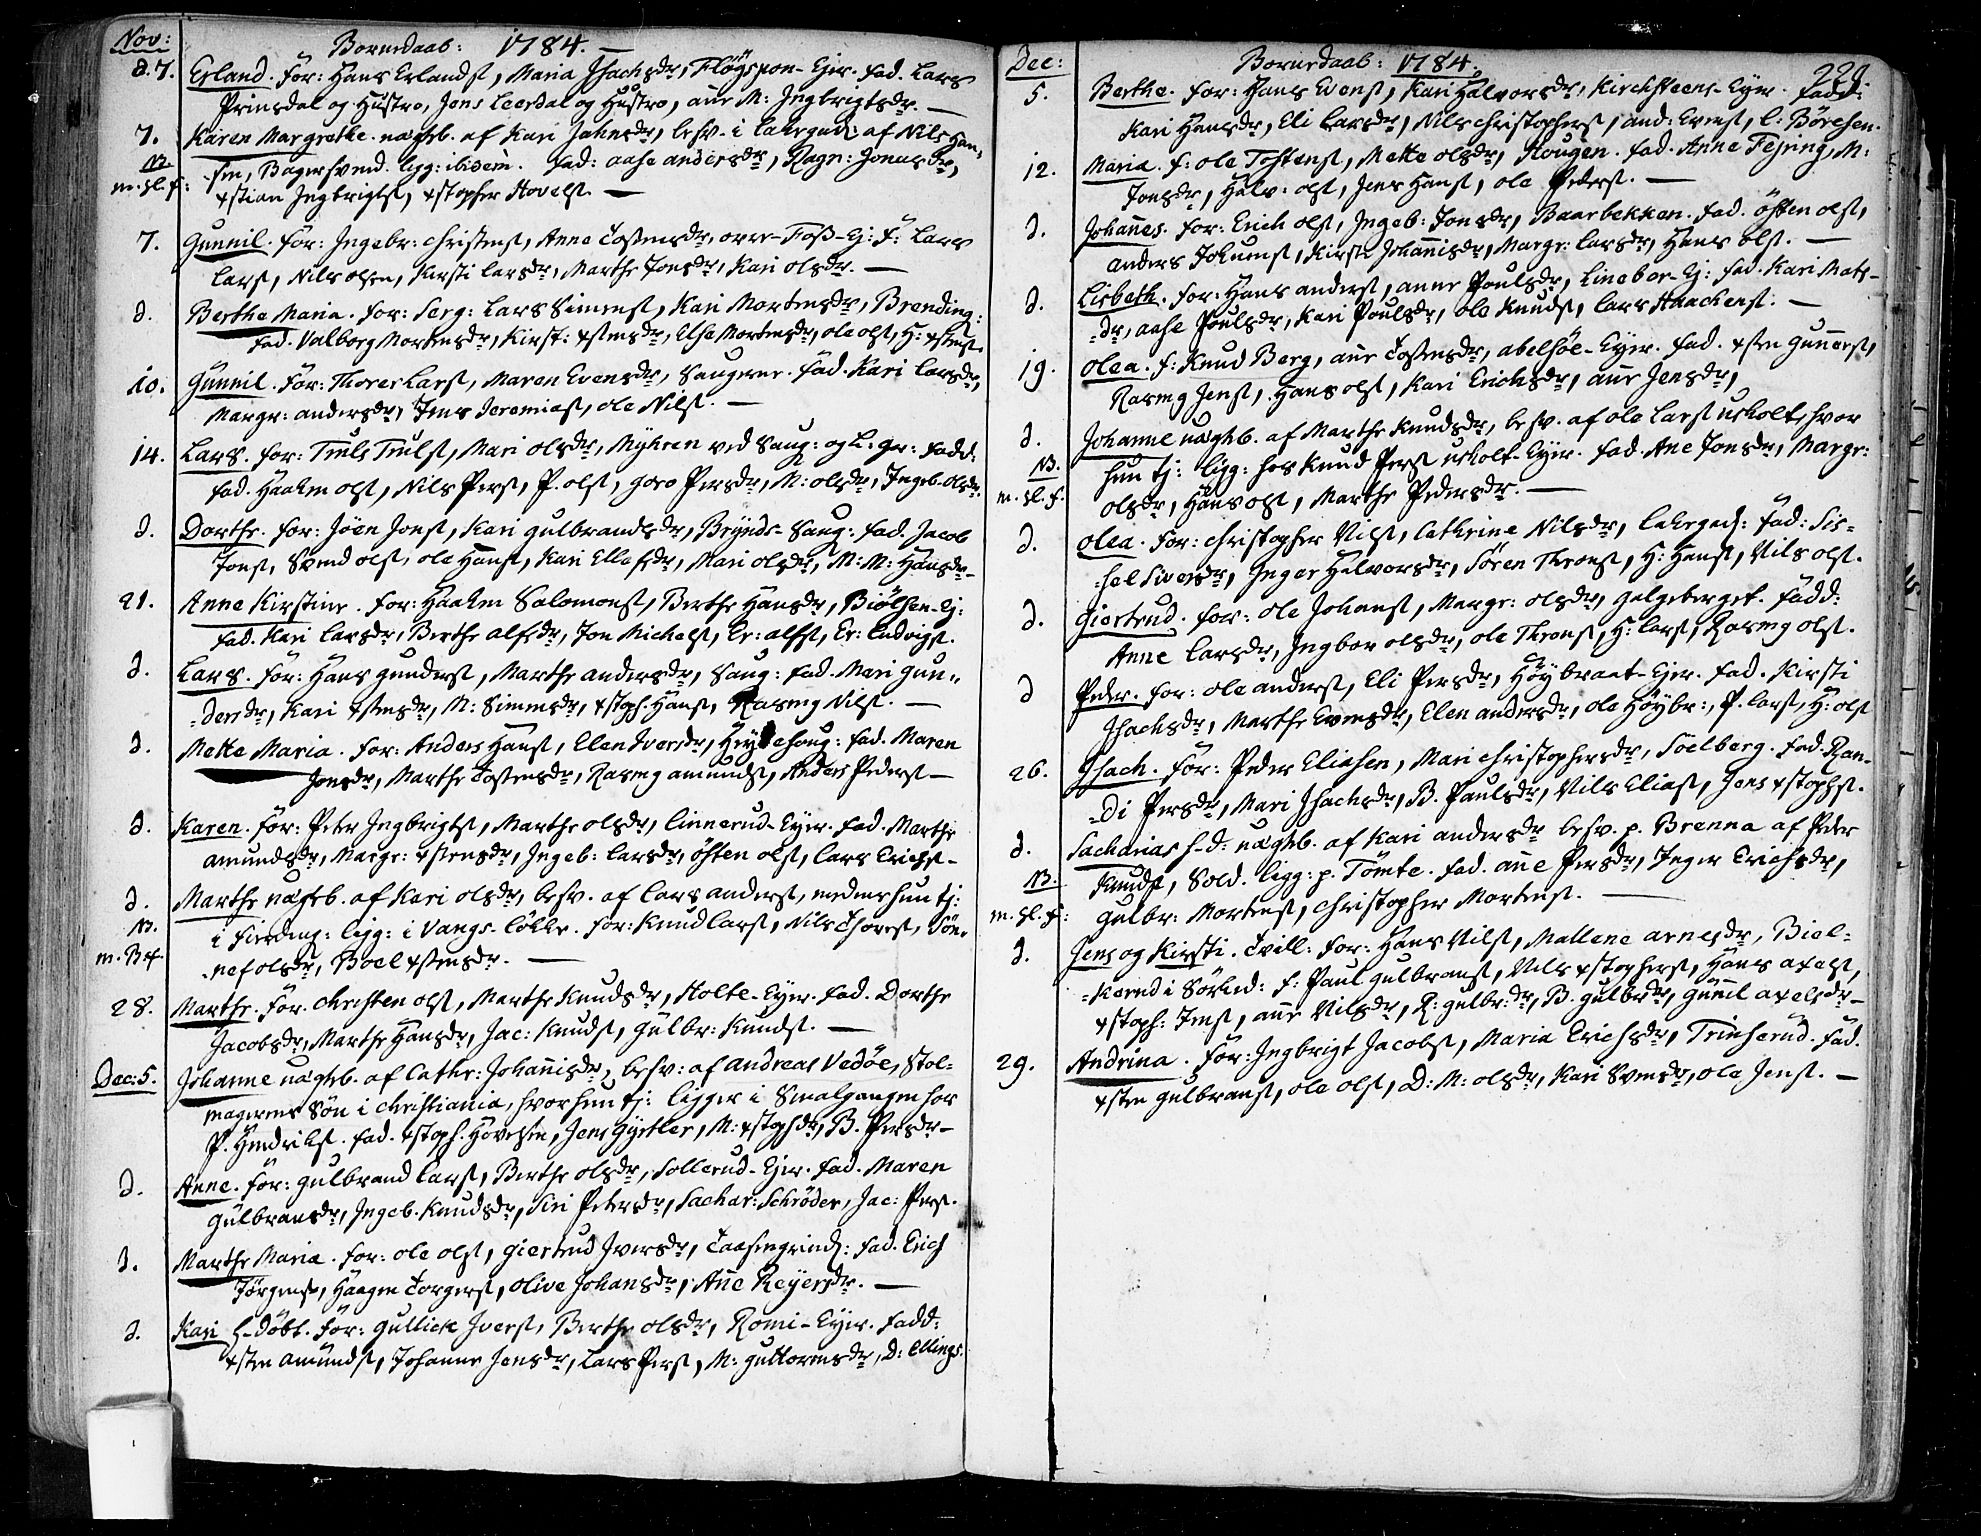 Nov: Bornedaab: 1784. —
d. 7. Erland. For: Hans Erlandsø, Maria Isachsdr, Fløyspon-Ejer. Fad. Lars
Prinsdal og Hustro, Jens Leerdal og Hustro, ane M: Ingbrigtsdr. —
7. Karen Margrethe. uægteb. af Kari Jahnsdr, besv. i Lakegad: af Nils Han-
NB. sen, Bagersvend. ligg: ibidem. Fad: Aase Andersdr, Ragn: Jonasdr,
m. sl. f: xstian Ingbrigts, xstopher Hovels. —
7. Gunnil. For: Ingebr: Christens, Anne Tostensdr, ovre-Foss-Ej: F: Lars
Lars, Nils Olsen, Kirsti Larsdr, Marthe Jonsdr, Kari Olsdr. —
d. Berthe Maria. For: Serg: Lars Simens, Kari Mortensdr, Brending:
Fad. Valborg Mortensdr, Kirst: xstensdr, Else Mortensdr, Ole Ols, H: xstens.
10. Gunnil. For: Thorer Lars, Maren Evensdr, Saugene. Fad. Kari Larsdr,
Margr: Andersdr, Jens Jeremias, Ole Nils. —
14. Lars. For: Truls Truls, Mari Olsdr, Myhren ved Saug: og L: gr: Fadd:
Fad. Haaken Ols, Nils Pers, P. Ols, Goro Persdr, M: Olsdr, Ingeb. Olsdr.
d. Dorthe. For: Jøen Jons, Kari Gulbrandsdr, Brynds-Saug: Fad. Jacob
Jons, Svend Ols, Ole Hans, Kari Ellefsdr, Mari Olsdr, M: M: Hansdr –
21. Anne Kirstine. For: Haaken Salomons, Berthe Hansdr, Biølsen-Ej:
Fad. Kari Larsdr, Berthe Alfsdr, Jon Michels, Er: Alfs, Er: Ludvigs.
d. Lars. For: Hans Gunders, Marthe Andersdr, Saug: Fad. Mari Gun-
-dersdr, Kari xstensdr, M: Simensdr, xstoph. Hans, Rasmg Nils. —
d. Mette Maria. For: Anders Hans, Elen Iversdr, Fad. Maren
Jensdr, Marthe Tostensdr, Rasmg Amunds, Anders Peders —
d. Karen. For: Peter Ingbrigts, Marthe Olsdr, Linnerud-Eyer. Fad. Marthe
Amundsdr, Margr: xstensdr, Ingeb: Larsdr, Østen Ols, Lars Erichs –
d. Marthe uægteb. af Kari Olsdr, besv. af Lars Anders, medens hun tj:
NB. i Fierding: ligg: i Vangs-Løkke. For: Knud Lars, Nils Thores, Søn-
m. Bef. -nef Olsdr, Boel xstensdr. —
28. Marthe. For. Christen Ols, Marthe Knudsdr, Holte-Eyer. Fad. Dorthe
Jacobsdr, Marthe Hansdr, Jac: Knuds, Gulbr: Knuds. —
Dec: 5. Johanne uægteb. af Cathr: Johannisdr, besv: af Andreas Vedøe, Stol-
magerens Søn i Christiania, hvor hun tj: ligger i Smalgangen hos
P. Hendriks. Fad. xstoph. Hovelsen, Jens Gyrtler, M: xstophdr, B. Persdr –
d. Anne. For: Gulbrand Lars, Berthe Olsdr, Sollerud-Ejer. Fad. Maren
Gulbransdr, Ingeb. Knudsdr, Siri Petersdr, Sachar: Schrøder, Jac: Pers.
d. Marthe Maria. For: Ole Ols, Giertrud Iversdr, Taasengrind: Fad. Erich
Jørgens, Haagen Torgers, Olive Johansdr, Ane Reyersdr. —
d. Kari h-døbt. For: Gullich Ivers, Berthe Olsdr, Romi-Eyer. Fadd:
xsten Amunds, Johanne Jensdr, Lars Pers, M: Guttormsdr, D: Ellings.
Dec: Bornedaab: 1784. 228.
5. Berthe. For: Hans Evens, Kari Halvorsdr, Kirchsteens-Eyer. Fadd:
Kari Hansdr, Eli Larsdr, Nils Christophers, And: Evens, C: Børesen.
12. Maria. F: Ole Tostens, Mette Olsdr, Hougen. Fad. Anne Fejring, M:
Jonsdr, Halv: Ols, Jens Hans, Ole Peders. —
d. Johannes. For: Erich Ols, Ingeb: Jonsdr, Baarbekken. Fad. Østen Ols,
Anders Jokums, Kirsti Johannisdr, Margr: Larsdr, Hans Ols. —
d. Lisbeth. For: Hans Anders, Anne Poulsdr, Linebor-Ej: Fad. Kari Mats-
-dr, Aase Poulsdr, Kari Poulsdr, Ole Knuds, Lars Haackens. —
19. Olea. F: Knud Berg, Ane Tostensdr, Abelsøe-Eyer. Fad. xsten Gunners,
Rasmg Jens, Hans Ols, Kari Erichsdr, Ane Jensdr,
d. Johanne uægteb. af Marthe Knudsdr, besv. af Ole Lars Ueholt, hvor
NB. hun tj: ligg: hos Knud Pers Ueholt-Eyer. Fad. Ane Jonsdr, Margr:
m. sl. f. Olsdr, Hans Ols, Marthe Pedersdr. —
d. Olea. For: Christopher Nils, Cathrine Nilsdr, Lakegad: Fad: Sis-
-sel Siversdr, Inger Halvorsdr, Søren Throns, H: Hans, Nils Ols.
d. Giertrud. For: Ole Johans, Margr: Olsdr, Galgeberget. Fadd:
Anne Larsdr, Ingbor Olsdr, Ole Throns, H: Lars, Rasmg Ols.
d Peder. For: Ole Anders, Eli Persdr, Høybraat-Ejer. Fad. Kirsti
Isachsdr, Marthe Evensdr, Elen Andersdr, Ole Høybr:, P. Lars, H: Ols
26. Isach. For: Peder Eliasen, Mari Christophersdr, Soelberg. Fad. Ran-
-di Persdr, Mari Isachsdr, B. Paulsdr, Nils Elias, Jens xstophs.
d. Sacharias h-d: uægteb. af Kari Andersdr besv. p. Brenna af Peder
NB. Knuds, Sold. ligg: p. Tømte. Fad. Ane Persdr, Inger Erichsdr,
m. sl. f: Gulbr: Mortens, Christopher Mortens. —
d. Jens og Kirsti. Tvill: For: Hans Nils, Mallene Arnesdr, Biel-
-kerud i Sørked: F: Paul Gulbrans, Nils xstophers, Hans Axels,
xstoph: Jens, Ane Nilsdr, R: Gulbr:dr, B. Gulbrdr, Gunnil Axelsdr –
29. Andrina. For: Ingbrigt Jacobs, Maria Erichsdr, Trinserud. Fad.
xsten Gulbrans, Ole Ols, D: M: Olsdr, Kari Svensdr, Ole Jens. —